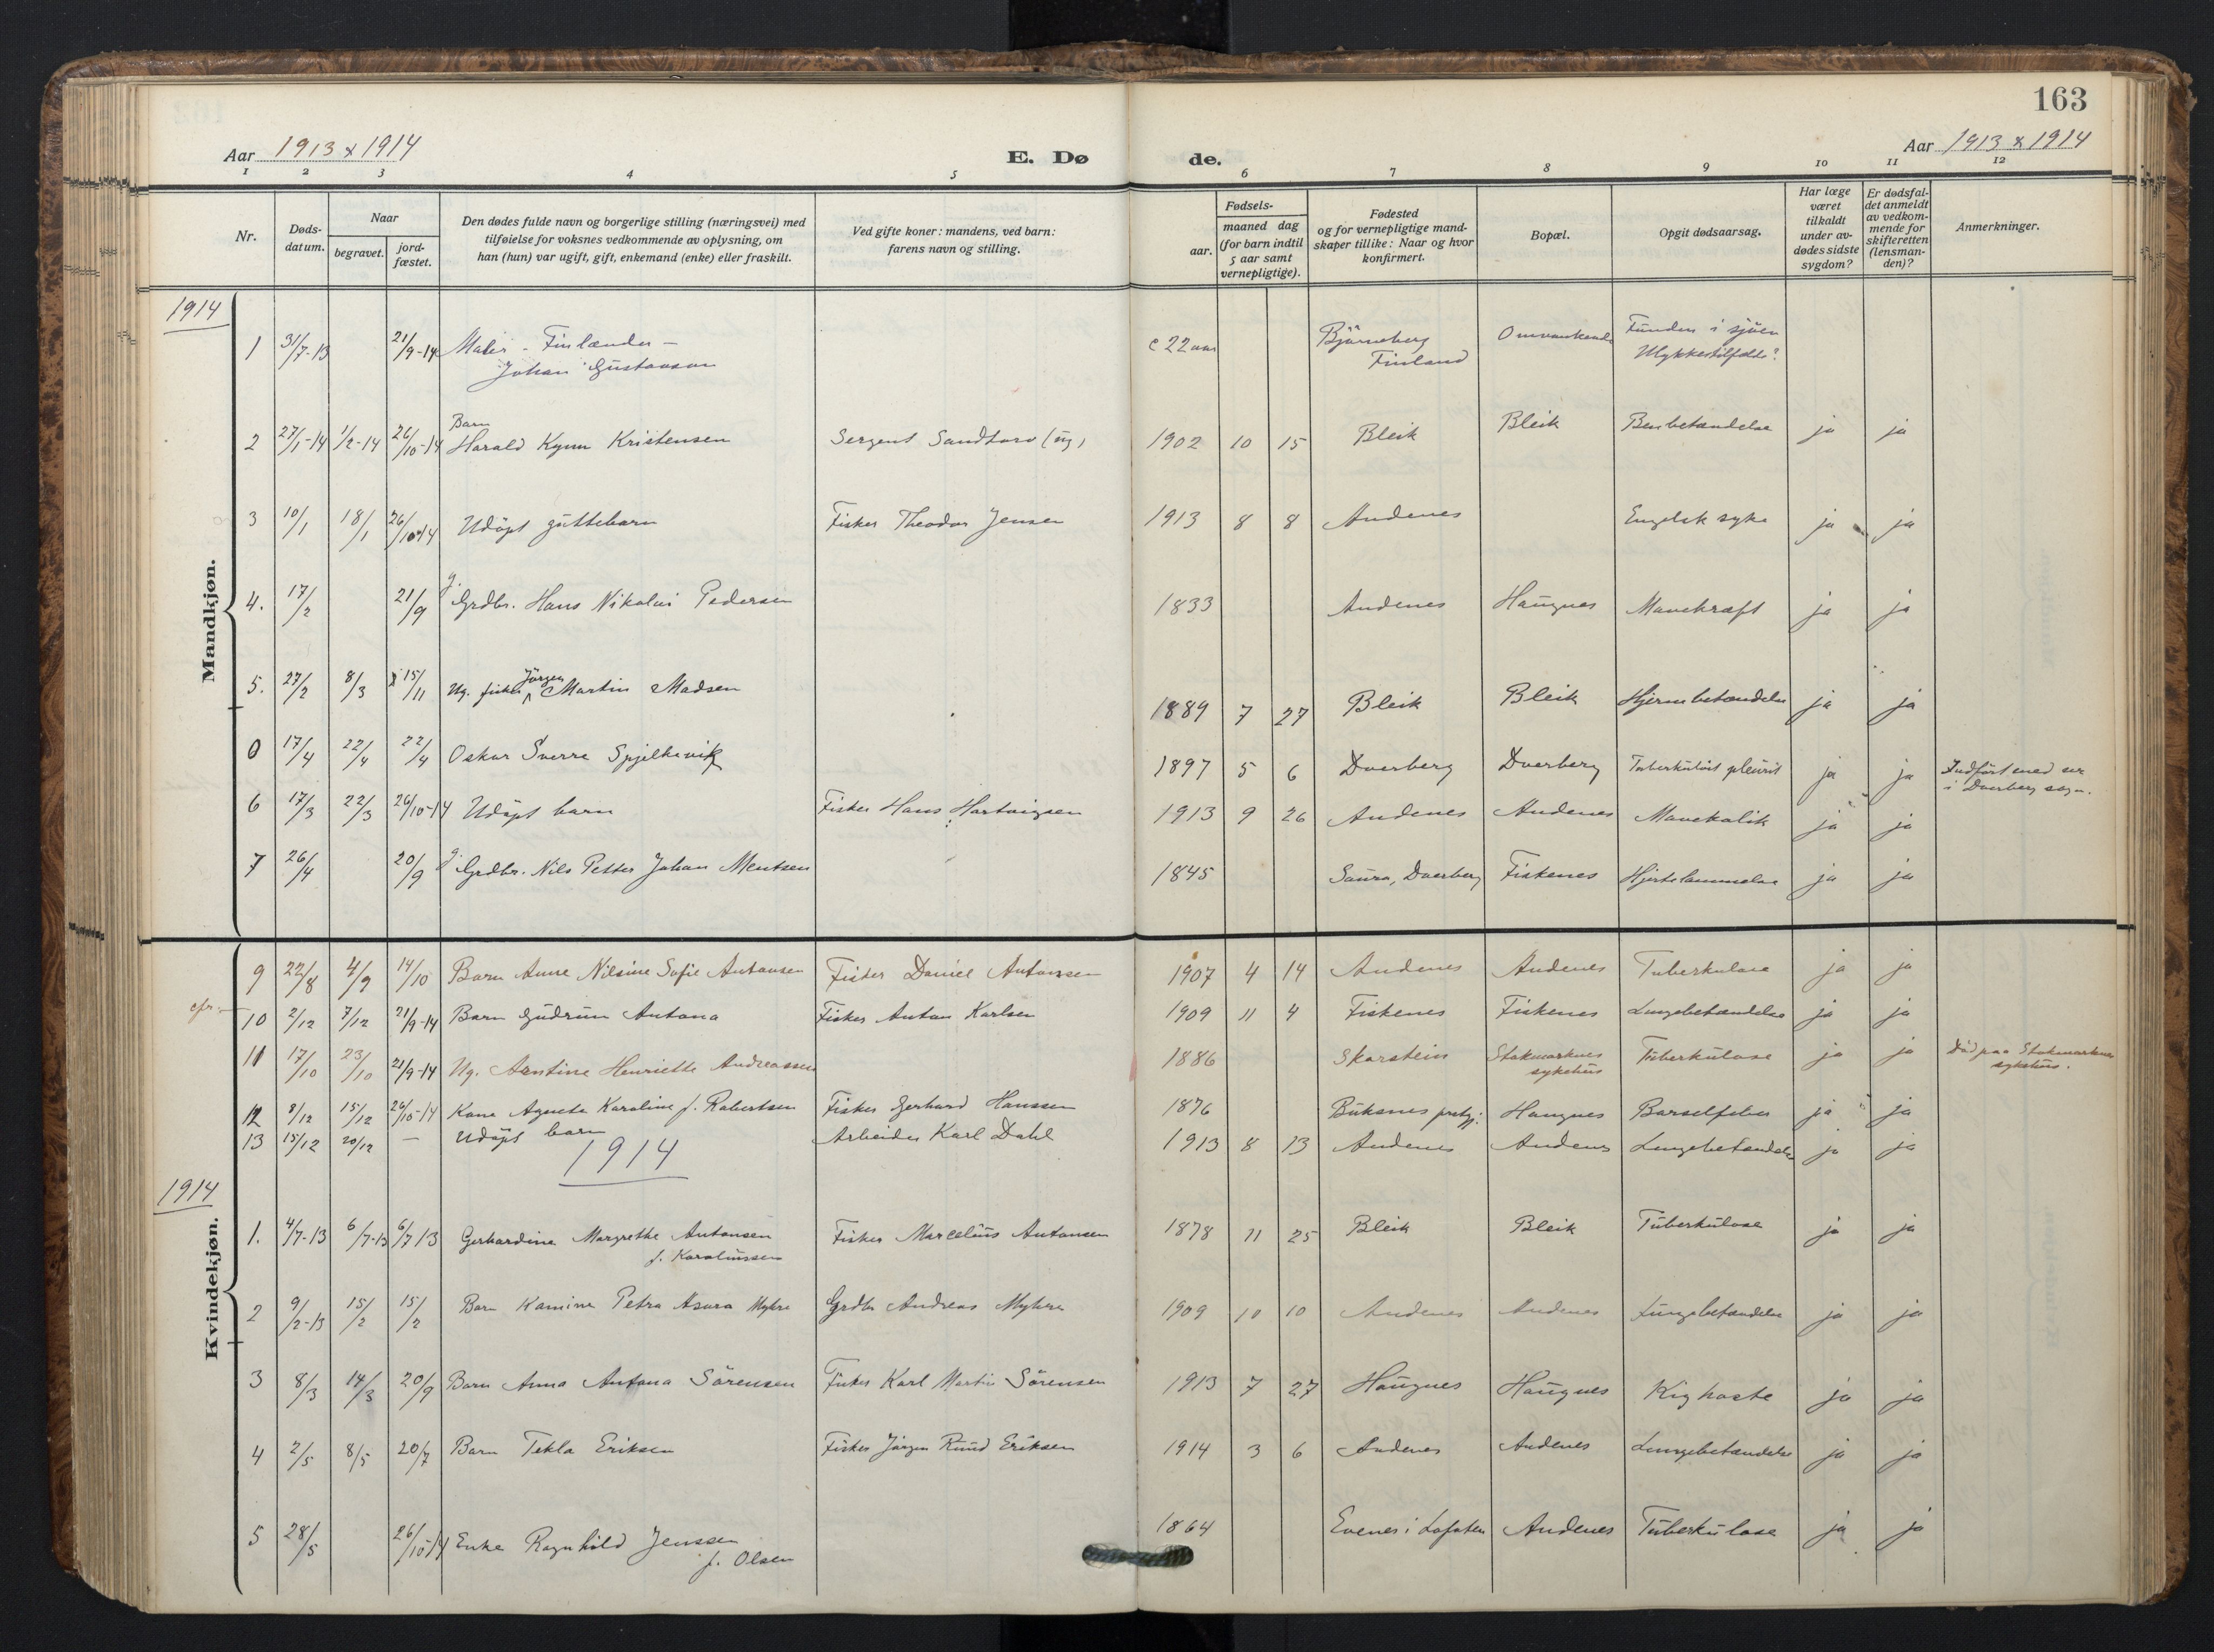 163
Aar 1913 & 1914 E. Dø de. Aar 1913 & 1914
1 2 3 4 5 6 7 8 9 10 11 12
Nr. Døds-datum. Naar begravet. jord-fæstet. Den dødes fulde navn og borgerlige stilling (næringsvei) med tilføielse for voksnes vedkommende av oplysning, om han (hun) var ugift, gift, enkemand (enke) eller fraskilt. Ved gifte koner: mandens, ved barn: farens navn og stilling. Fødsels- aar. maaned dag (for barn indtil 5 aar samt vernepligtige). Fødested og for vernepligtige mandskaper tillike: Naar og hvor konfirmert. Bopæl. Opgit dødsaarsag. Har læge været tilkaldt under avdødes sidste sygdom? Er dødsfaldet anmeldt av vedkommende for skifteretten (lensmanden)? Anmerkninger.
1914
Mandkjøn.
1 31/7-13 21/9-14 Maler - Finlænder - c 22 aar Bjørneborg Omvankende Funden i sjöen
Johan Gustavson Finland Ulykkestilfælde?
Barn
2 27/1-14 1/2-14 26/10-14 Harald Kynn Kristensen Sergent Sandtorv (ug) 1902 10 15 Bleik Bleik Benbetændelse ja ja
3 10/1 18/1 26/10-14 Udöpt guttebarn Fisker Theodor Jensen 1913 8 8 Andenes Engelsk syke ja ja
4. 17/2 21/9 g. Grdbr. Hans Nikolai Pedersen 1833 Andenes Haugnes Mavekræft ja ja
5. 27/2 8/3 15/11 Ug. fisker Jörgen Martin Madsen 1889 7 27 Bleik Bleik Hjernebetændelse ja ja
0 17/4 22/4 22/4 Oskar Sverre Spjelkevik 1897 5 6 Dverberg Dverberg Tuberkuløs pleurit ja ja Indført med nr
i Dverberg sogn.
6 17/3 22/3 26/10-14 Udöpt barn Fisker Hans Hartvigsen 1913 9 26 Andenes Andenes Mavekolik ja ja
7 26/4 20/9 g. Grdbr. Nils Petter Johan Mentsen 1845 Saura, Dverberg Fiskenes Hjertelammelse ja ja
Kvindekjøn.
9 22/8 4/9 14/10 Barn Anne Nilsine Sofie Antonsen Fisker Daniel Antonsen 1907 4 14 Andenes Andenes Tuberkulose ja ja
cfr.
10 2/12 7/12 21/9-14 Barn Gudrun Antona Fisker Anton Karlsen 1909 11 4 Fiskenes Fiskenes Lungebetændelse ja ja
11 17/10 23/10 21/9-14 Ug. Arntine Henriette Andreassen 1886 Skarstein Stokmarknes sykehus Tuberkulose ja ja Död paa Stokmarknes
sykehus.
12 8/12 15/12 26/10-14 Kone Agnete Karoline f. Robertsen Fisker Gerhard Hanssen 1876 Buksnes prstgj. Haugnes Barselfeber ja ja
13 15/12 20/12 — Udöpt barn Arbeider Karl Dahl 1913 8 13 Andenes Andenes Lungebetændelse ja ja
1914
1914
1. 4/7-13 6/7-13 6/7 13 Gerhardine Margrethe Antonsen Fisker Marcelius Antonsen 1878 11 25 Bleik Bleik Tuberkulose ja ja
f. Karoliussen
2 9/2-13 15/2 15/2 Barn Kamine Petra Asora Myhre Grdbr Andreas Myhre 1909 10 10 Andenes Andenes Lungebetændelse ja ja
3 8/3 14/3 20/9 Barn Anna Antona Sörensen Fisker Karl Martin Sörensen 1913 7 27 Haugnes Haugnes Kighoste ja ja
4 2/5 8/5 20/7 Barn Tekla Eriksen Fisker Jörgen Ruud Eriksen 1914 3 6 Andenes Andenes Lungebetændelse ja ja
5 28/5 26/10-14 Enke Ragnhild Jenssen 1864 Evenes i Lofoten Andenes Tuberkulose ja ja
f. Olsen